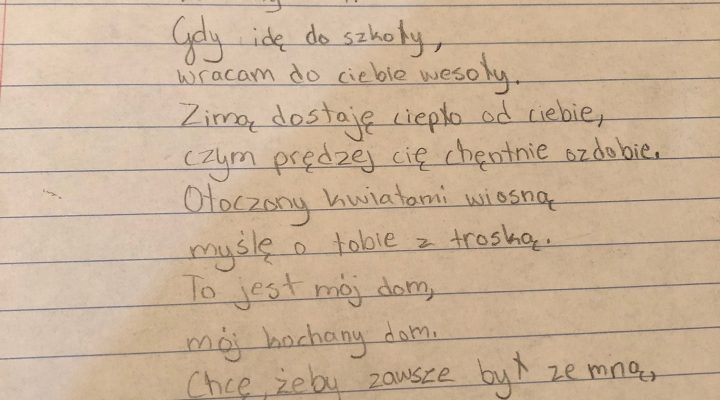 Gdy idę do szkoły,
wracam do ciebie wesoły.
Zimą dostaję ciepło od ciebie,
czym prędzej cię chętnie ozdobie.
Otoczony kwiatami wiosną
myślę o tobie z troską.
To jest mój dom,
mój kochany dom.
Chcę, żeby zawsze był ze mną,